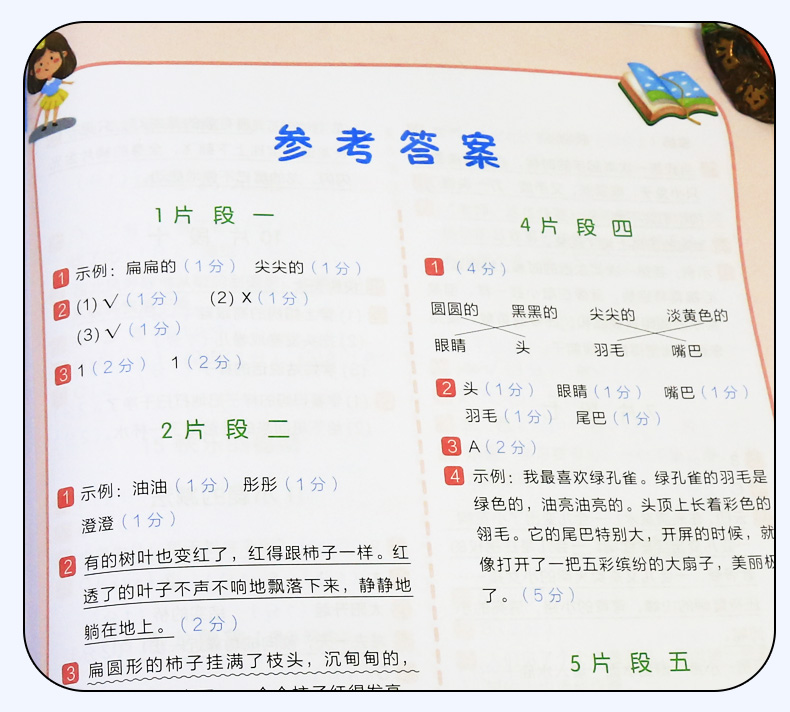 参考答案
1片段一
1 示例：扁扁的（1分） 尖尖的（1分）
2 (1)√（1分） (2)X（1分）
(3)√（1分）
3 1（2分） 1（2分）
2片段二
1 示例：油油（1分）彤彤（1分）
澄澄（1分）
2 有的树叶也变红了，红得跟柿子一样。红
透了的叶子不声不响地飘落下来，静静地
躺在地上。（2分）
3 扁圆形的柿子挂满了枝头，沉甸甸的，
4片段四
1（4分）
圆圆的 黑黑的 尖尖的 淡黄色的
眼睛 头 羽毛 嘴巴
2 头（1分） 眼睛（1分） 嘴巴（1分）
羽毛（1分） 尾巴（1分）
3 A（2分）
4 示例：我最喜欢绿孔雀。绿孔雀的羽毛是
绿色的，油亮油亮的。头顶上长着彩色的
翎毛。它的尾巴特别大，开屏的时候，就
像打开了一把五彩缤纷的大扇子，美丽极
了。（5分）
5片段五